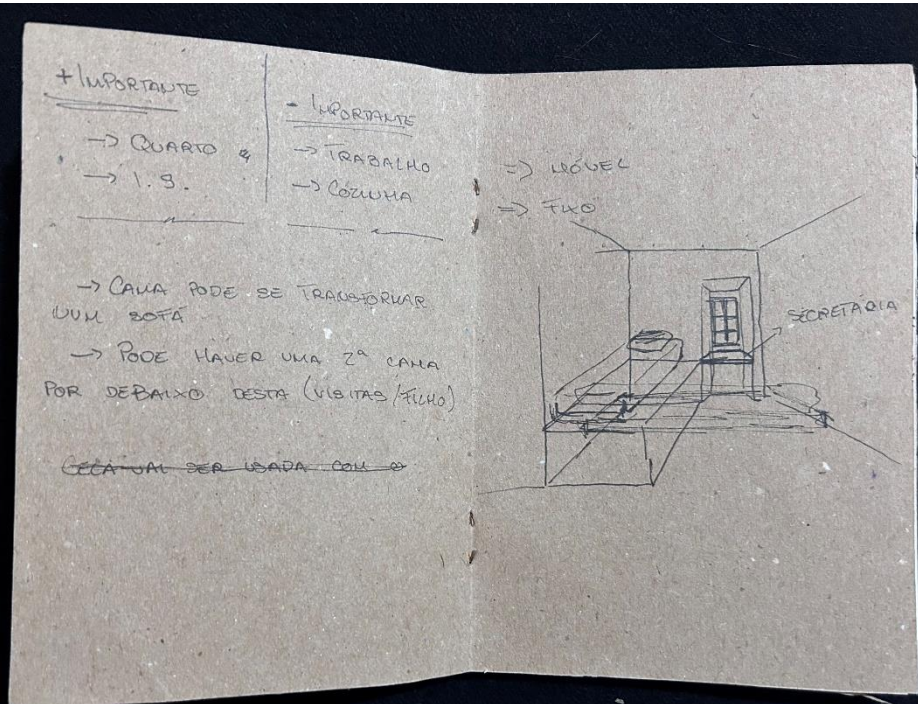 + IMPORTANTE
→ QUARTO
→ I.S.
- IMPORTANTE
→ TRABALHO
→ COZINHA
→ CAMA PODE SE TRANSFORMAR
NUM SOFÁ
→ PODE HAVER UMA 2ª CAMA
POR DEBAIXO DESTA (VISITAS/FILHO)
VAI SER USADA COM O
=> MÓVEL
=> FIXO
SECRETÁRIA